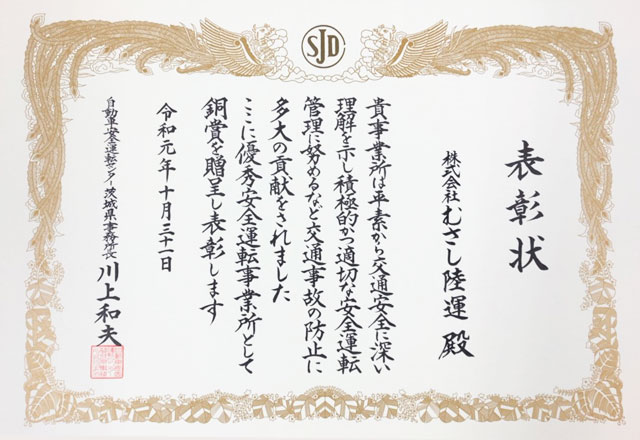 SJD
表彰状
株式会社むさし陸運 殿
貴事業所は平素から交通安全に深い
理解を示し積極的かつ適切な安全運転
管理に努めるなど交通事故の防止に
多大の貢献をされました
ここに優秀安全運転事業所として
銅賞を贈呈し表彰します
令和元年十月三十一日
自動車安全運転センター茨城県事務所長
川上和夫